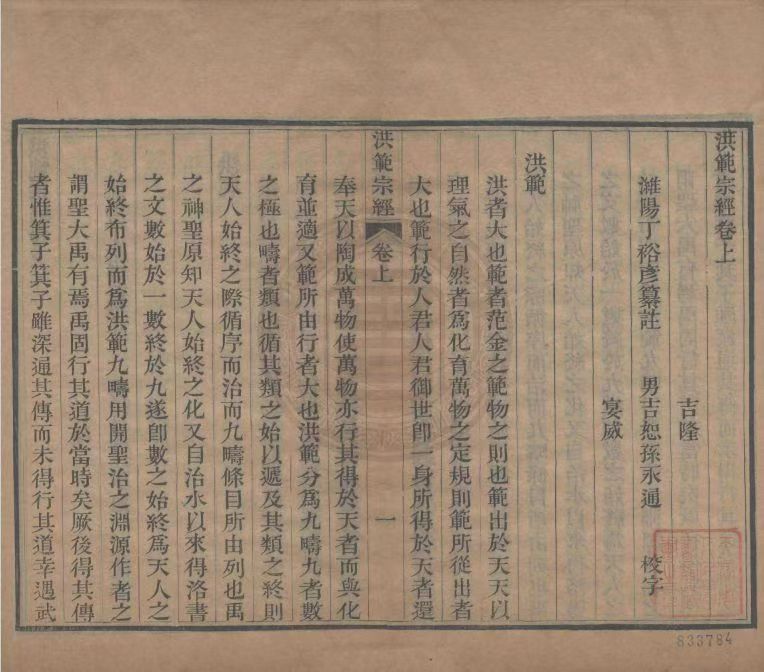 洪範宗經卷上
吉隆
濰陽丁裕彥纂註　男吉恕孫永通　校字
宴威
洪範
洪者大也範者范金之範物之則也範出於天天以
理氣之自然者爲化育萬物之定規則範所從出者
大也範行於人君人君御世卽一身所得於天者還
洪範宗經　卷上　一
奉天以陶成萬物使萬物亦行其得於天者而與化
育並適又範所由行者大也洪範分爲九疇九者數
之極也疇者類也循其類之始以遞及其類之終則
天人始終之際循序而治而九疇條目所由列也禹
之神聖原知天人始終之化又自治水以來得洛書
之文數始於一數終於九遂卽數之始終爲天人之
始終布列而爲洪範九疇用開聖治之淵源作者之
謂聖大禹有焉禹固行其道於當時矣厥後得其傳
者惟箕子箕子雖深通其傳而未得行其道幸遇武
833784